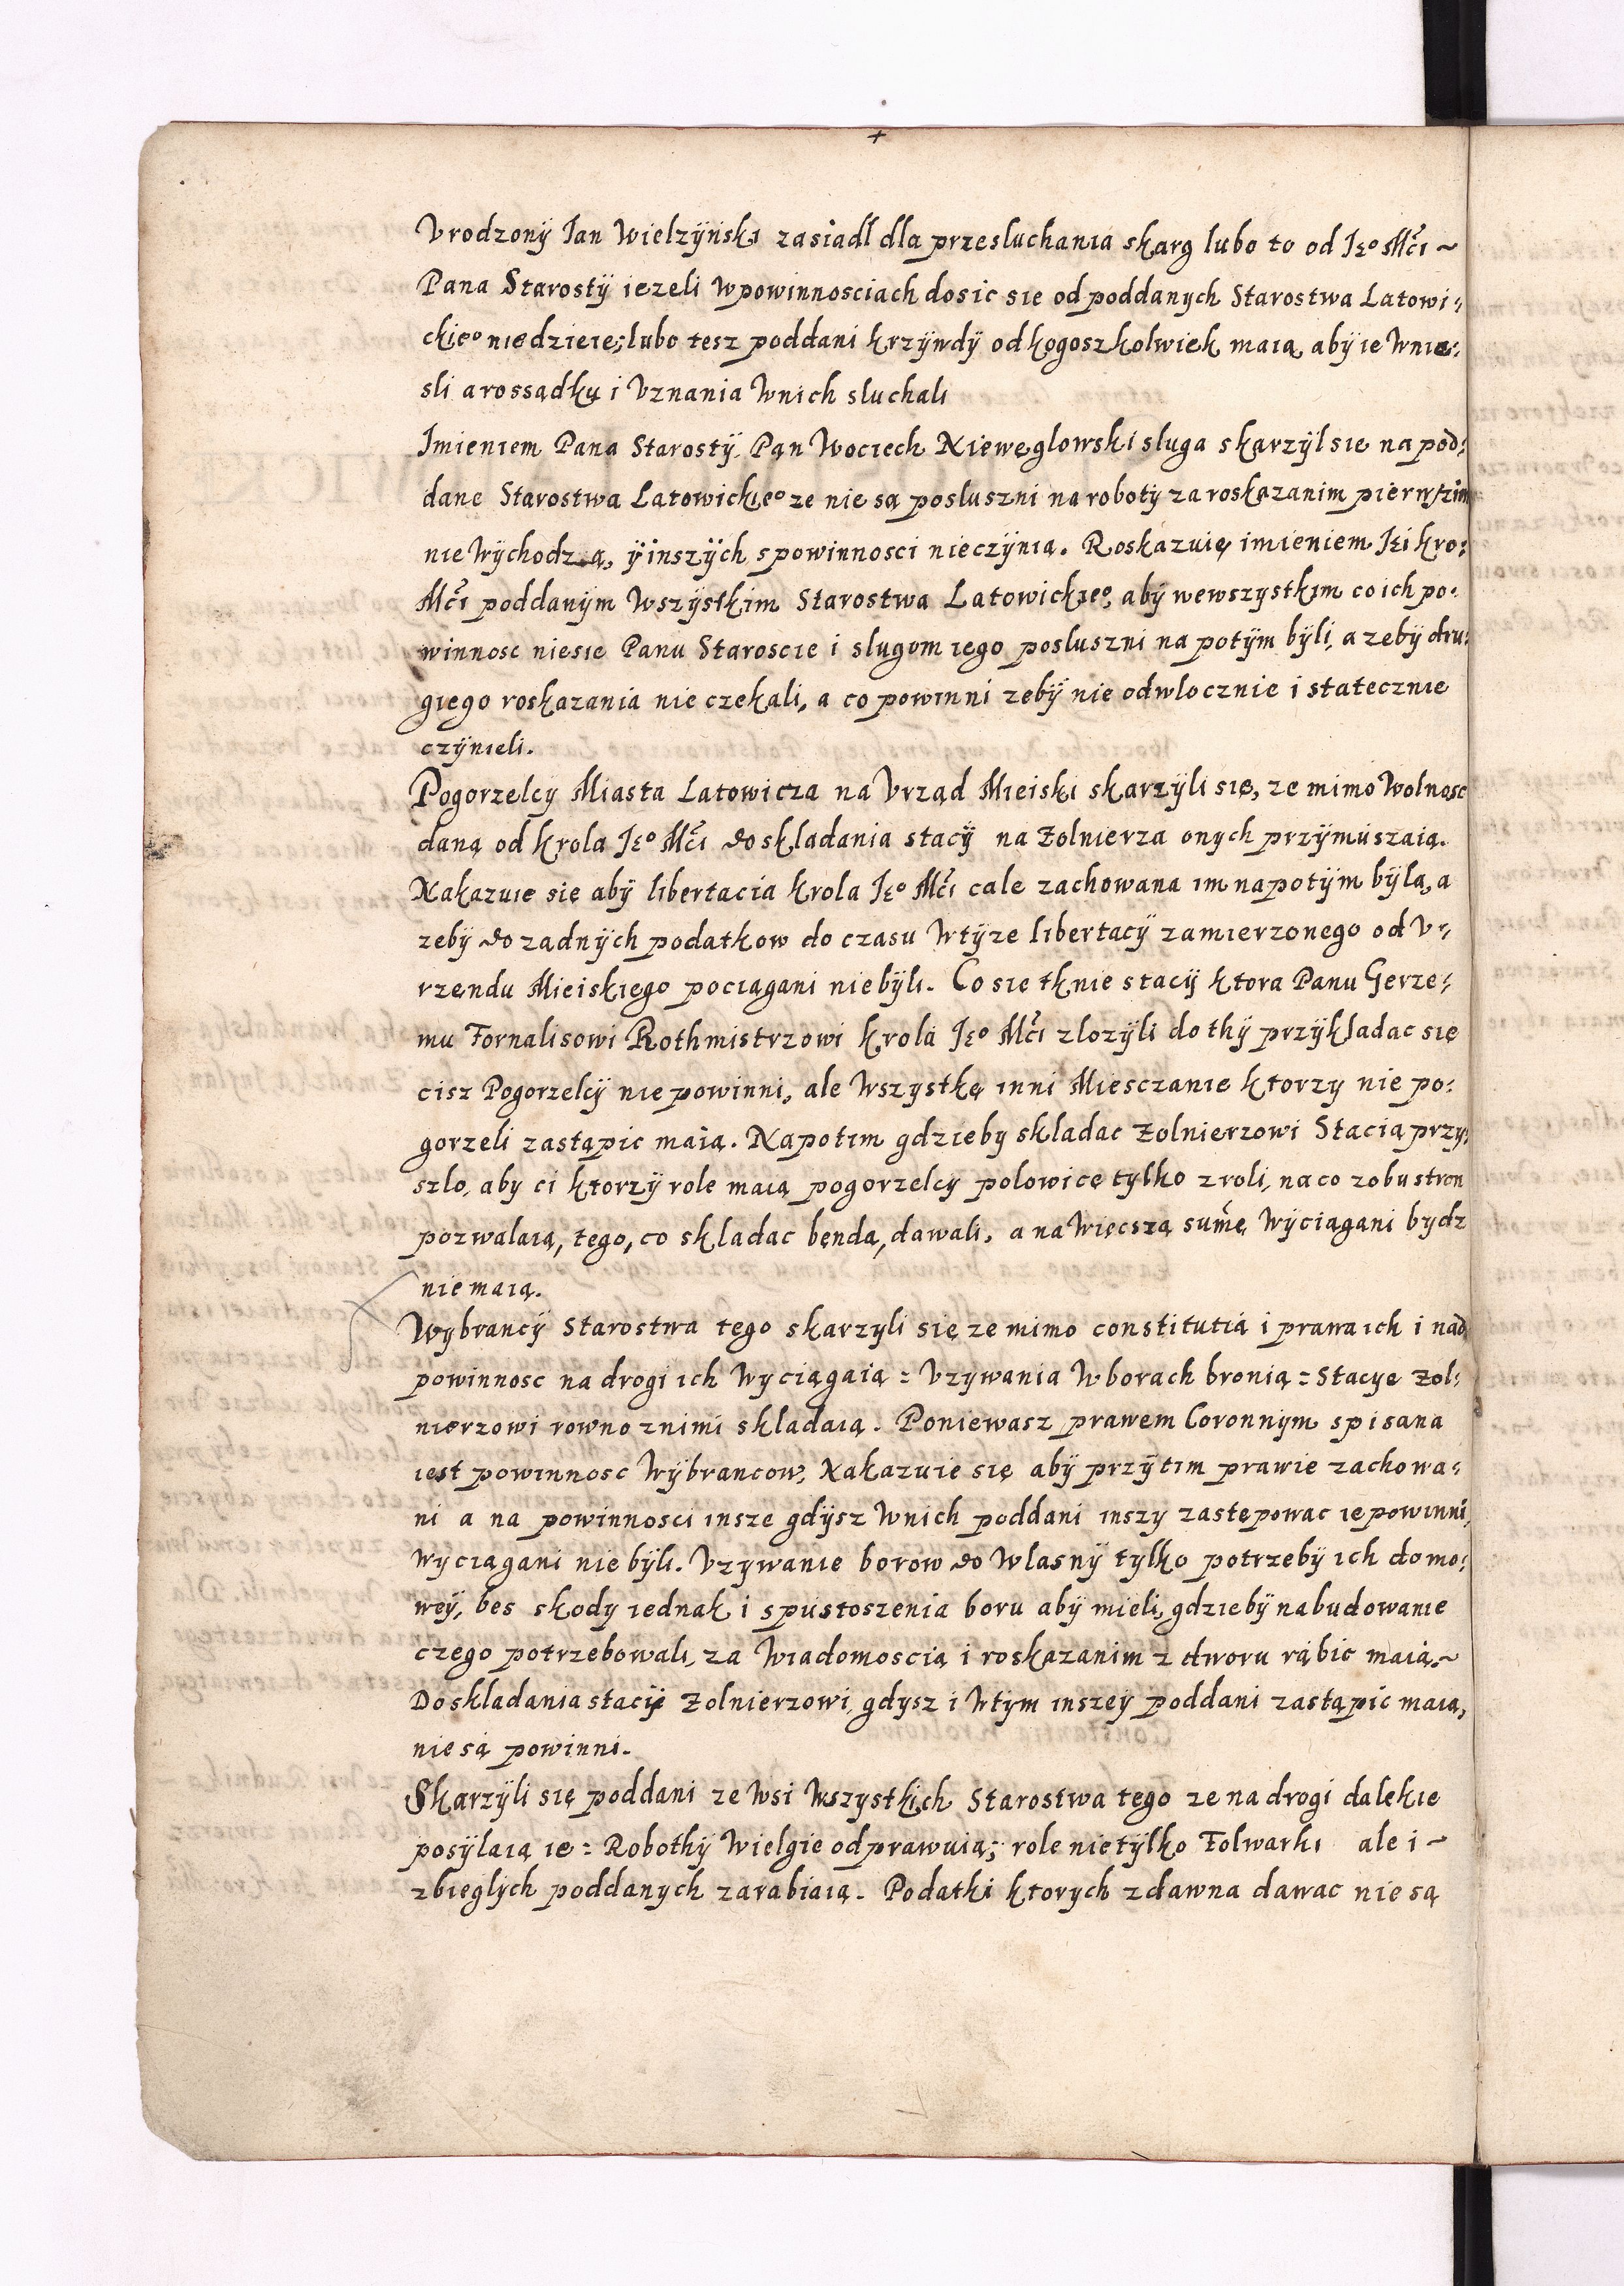 Vrodzonÿ Jan Wielzÿnski zasiadl dla przesluchania skarg lubo to od Jeº Mći ~
Pana Starostÿ iezeli wpowinnosciach dosic sie od poddanych Starostwa Latowi-
ckieº niedzieie; lubo tesz poddani krzÿwdÿ od kogoszkolwiek maią, abÿ ie wnie-
sli a rossądku i Vznania wnich sluchali
Jmieniem Pana Starostÿ, Pan Wociech Nieweglowski sluga skarzÿl sie na pod-
dane Starostwa Latowickieº ze nie są posluszni na robotÿ za roskazanim pierwszim
nie wÿchodzą, ÿ inszÿch spowinnosci nieczÿnią. Roskazuię imieniem Jei Kro:
Mći poddanÿm wszÿstkim Starostwa Latowickieº, abÿ wewszystkim co ich po-
winnosc niesie Panu Staroscie i slugom iego posluszni na potÿm bÿli, a zebÿ dru-
giego roskazania nie czekali, a co powinni zebÿ nie odwlocznie i statecznie
czÿnieli.
Pogorzelcy Miasta Latowicza na Vrząd Mieiski skarzÿli się, ze mimo wolnosc
daną od krola Jeº Mći do skladania stacÿ na Zolnierza onych przÿmuszaią.
Nakazuie się abÿ libertacia krola Jeº Mći cale zachowana im napotÿm bÿla, a
zebÿ do zadnÿch podatkow do czasu wtÿze libertacÿ zamierzonego od V-
rzendu Mieiskiego pociągani niebÿli. Co się tknie stacÿ ktora Panu Gerze-
mu Fornalisowi Rothmistrzowi krola Jeº Mći zlozÿli do thÿ przÿkladac się
cisz Pogorzelcÿ nie powinni, ale wszystkę inni Miesczanie ktorzy nie po-
gorzeli zastąpic maią. Napotim gdzieby skladac Zolnierzowi Stacią przy-
szlo, aby ci ktorzÿ role maią pogorzelcy polowicę tylko z roli, na co z obu stron
pozwalaią, tego, co skladac bendą, dawali, a na więcszą sumę wÿciągani bydz
nie maią.
Wybrancÿ Starostwa tego skarzyli się ze mimo constitutią i prawa ich i nad
powinnosc na drogi ich wyciągaią : Vzywania w borach bronią : Stacye Zol-
nierzowi rowno znimi skladaią. Poniewasz prawem Coronnÿm spisana
iest powinnosc wÿbrancow, Nakazuie się abÿ przÿ tim prawie zachowa-
ni a na powinnosci insze gdÿsz wnich poddani inszy zastępowac ie powinni,
wyciągani nie bÿli. Vzywanie borow do wlasnÿ tylko potrzebÿ ich domo-
weÿ, bes skody iednak i spustoszenia boru abÿ mieli, gdziebÿ na budowanie
czego potrzebowali, za wiadomoscią i roskazanim z dworu rąbic maią. ~
Do skladania stacÿi Zolnierzowi, gdysz i wtÿm inszeÿ poddani zastąpic maią,
nie są powinni.
Skarzÿli się poddani ze wsi wszystkich Starostwa tego ze na drogi dalekie
posÿlaią ie : Robothÿ wielgie odprawuią; role nietÿlko Folwarki ale i ~
zbieglÿch poddanych zarabiaią. Podatki ktorych zdawna dawac nie są